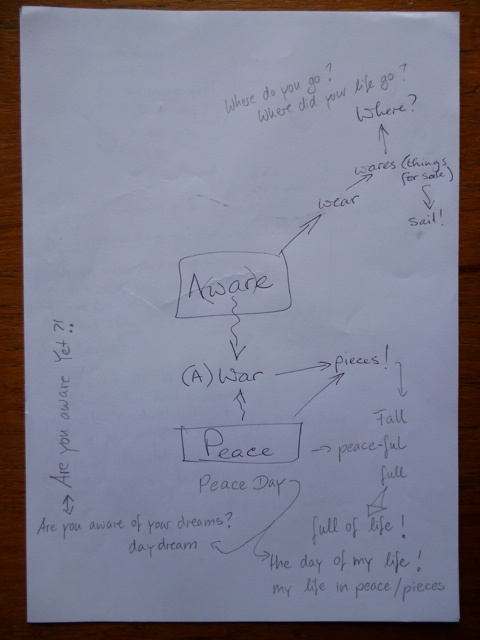 Where do you go?
Where did your life go?
Where?
wares (things
for sale)
sail!
wear
A(war)e
(A) War
pieces!
Fall
Peace
peace-ful
full
Peace Day
full of life!
Are you aware Yet?!
Are you aware of your dreams?
daydream
the day of my life!
my life in peace/pieces